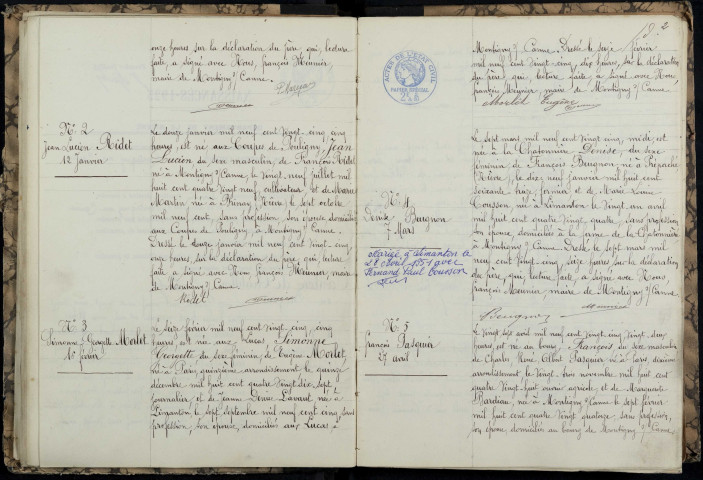 onze heures sur la déclaration du père qui, lecture
faite, a signé avec Nous, françois Meunier
maire de Montigny s/ Canne.
N° 2
Jean Lucien Ridet
12 Janvier
Le douze janvier mil neuf cent vingt cinq, cinq
heures, est né aux Coupes de Pouligny, Jean
Lucien du sexe masculin, de François Ridet
né à Montigny s/ Canne, le vingt neuf juillet mil
huit cent quatre vingt neuf, cultivateur et de Marie
Martin née à (Nièvre) le sept octobre
mil neuf cent, sans profession son épouse, domiciliés
aux Coupes de Pouligny, à Montigny s/ Canne.
Dressé le douze janvier mil neuf cent vingt cinq,
onze heures, sur la déclaration du père, qui, lecture
faite, a signé avec Nous françois Meunier, maire
de Montigny s/ Canne
Ridet
N° 3
Simonne Georgette Morlet
16 février
Le seize février mil neuf cent vingt cinq, cinq
heures, est née aux Lucas, Simonne
Georgette du sexe féminin, de Eugène Morlet,
né à Paris quinzième arrondissement le quinze
décembre mil huit cent quatre vingt dix sept,
journalier, et de Jeanne née à
Limanton, le sept septembre mil neuf cent cinq, sans
profession, son épouse, domiciliés aux Lucas à
2
ACTES DE L'ETAT CIVIL
PAPIER SPECIAL
Montigny s/ Canne. Dressé le seize février
mil neuf cent vingt cinq, dix heures, sur la déclaration
du père qui, lecture faite, a signé avec Nous,
françois Meunier maire de Montigny s/ Canne
Morlet Eugène
N° 4
Denise Beugnon
7 Mars
Mariée à Limanton le
avril 1951 avec
Fernand Paul Cousson
Le sept mars mil neuf cent vingt cinq, midi, est
née à la Chatonnière Denise, du sexe
féminin de François Beugnon, né à
Nièvre, le dix neuf janvier mil huit cent
soixante fermier et de Marie Louise
Cousson, née à Limanton le vingt un avril
mil huit cent quatre vingt quatre, sans profession,
son épouse, domiciliés à la ferme de la Chatonnière
à Montigny s/ Canne. Dressé le sept mars mil
neuf cent vingt cinq, seize heures sur la déclaration
du père, qui, lecture faite, a signé avec Nous,
françois Meunier, maire de Montigny s/ Canne
Beugnon
N° 5
françois Pasquier
27 avril
Le vingt sept avril mil neuf cent vingt cinq, vingt deux
heures, est né au bourg, François du sexe masculin
de Charles René Albert Pasquier né à Paris dixième
arrondissement, le vingt trois novembre mil huit cent
quatre vingt huit ouvrier agricole, et de Marguerite
Bardiau, née à Montigny s/ Canne le sept février
mil huit cent quatre vingt quatorze, sans profession,
son épouse, domiciliés au bourg de Montigny s/ Canne